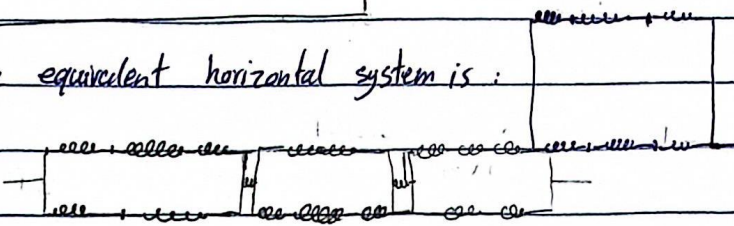 equivalent horizontal system is :